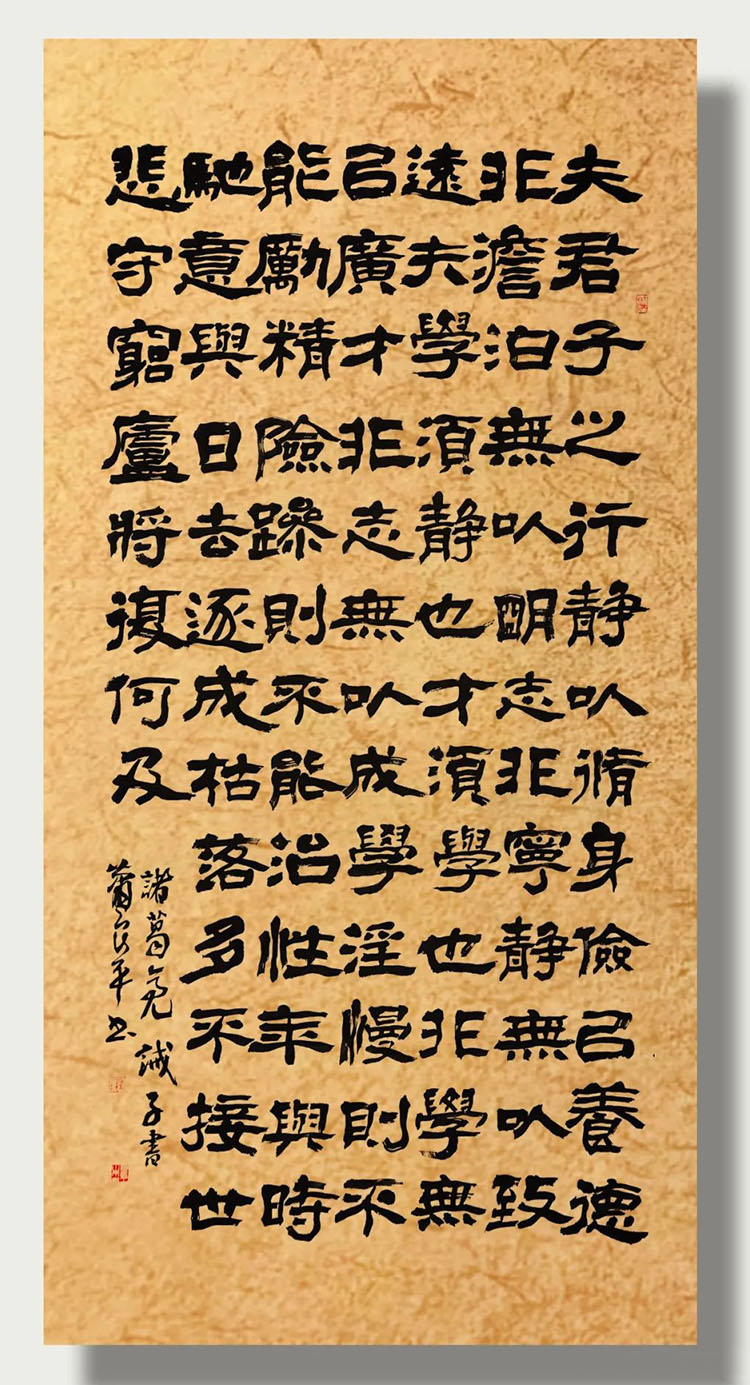 夫君子之行静以脩身儉以養德
非澹泊無以明志非寧静無以致
遠夫學須静也才須學也非學無
以廣才非志無以成學淫慢則不
能勵精險躁則不能治性年與時
馳意與日去遂成枯落多不接世
悲守窮廬將復何及
諸葛亮誡子書
蕭平书